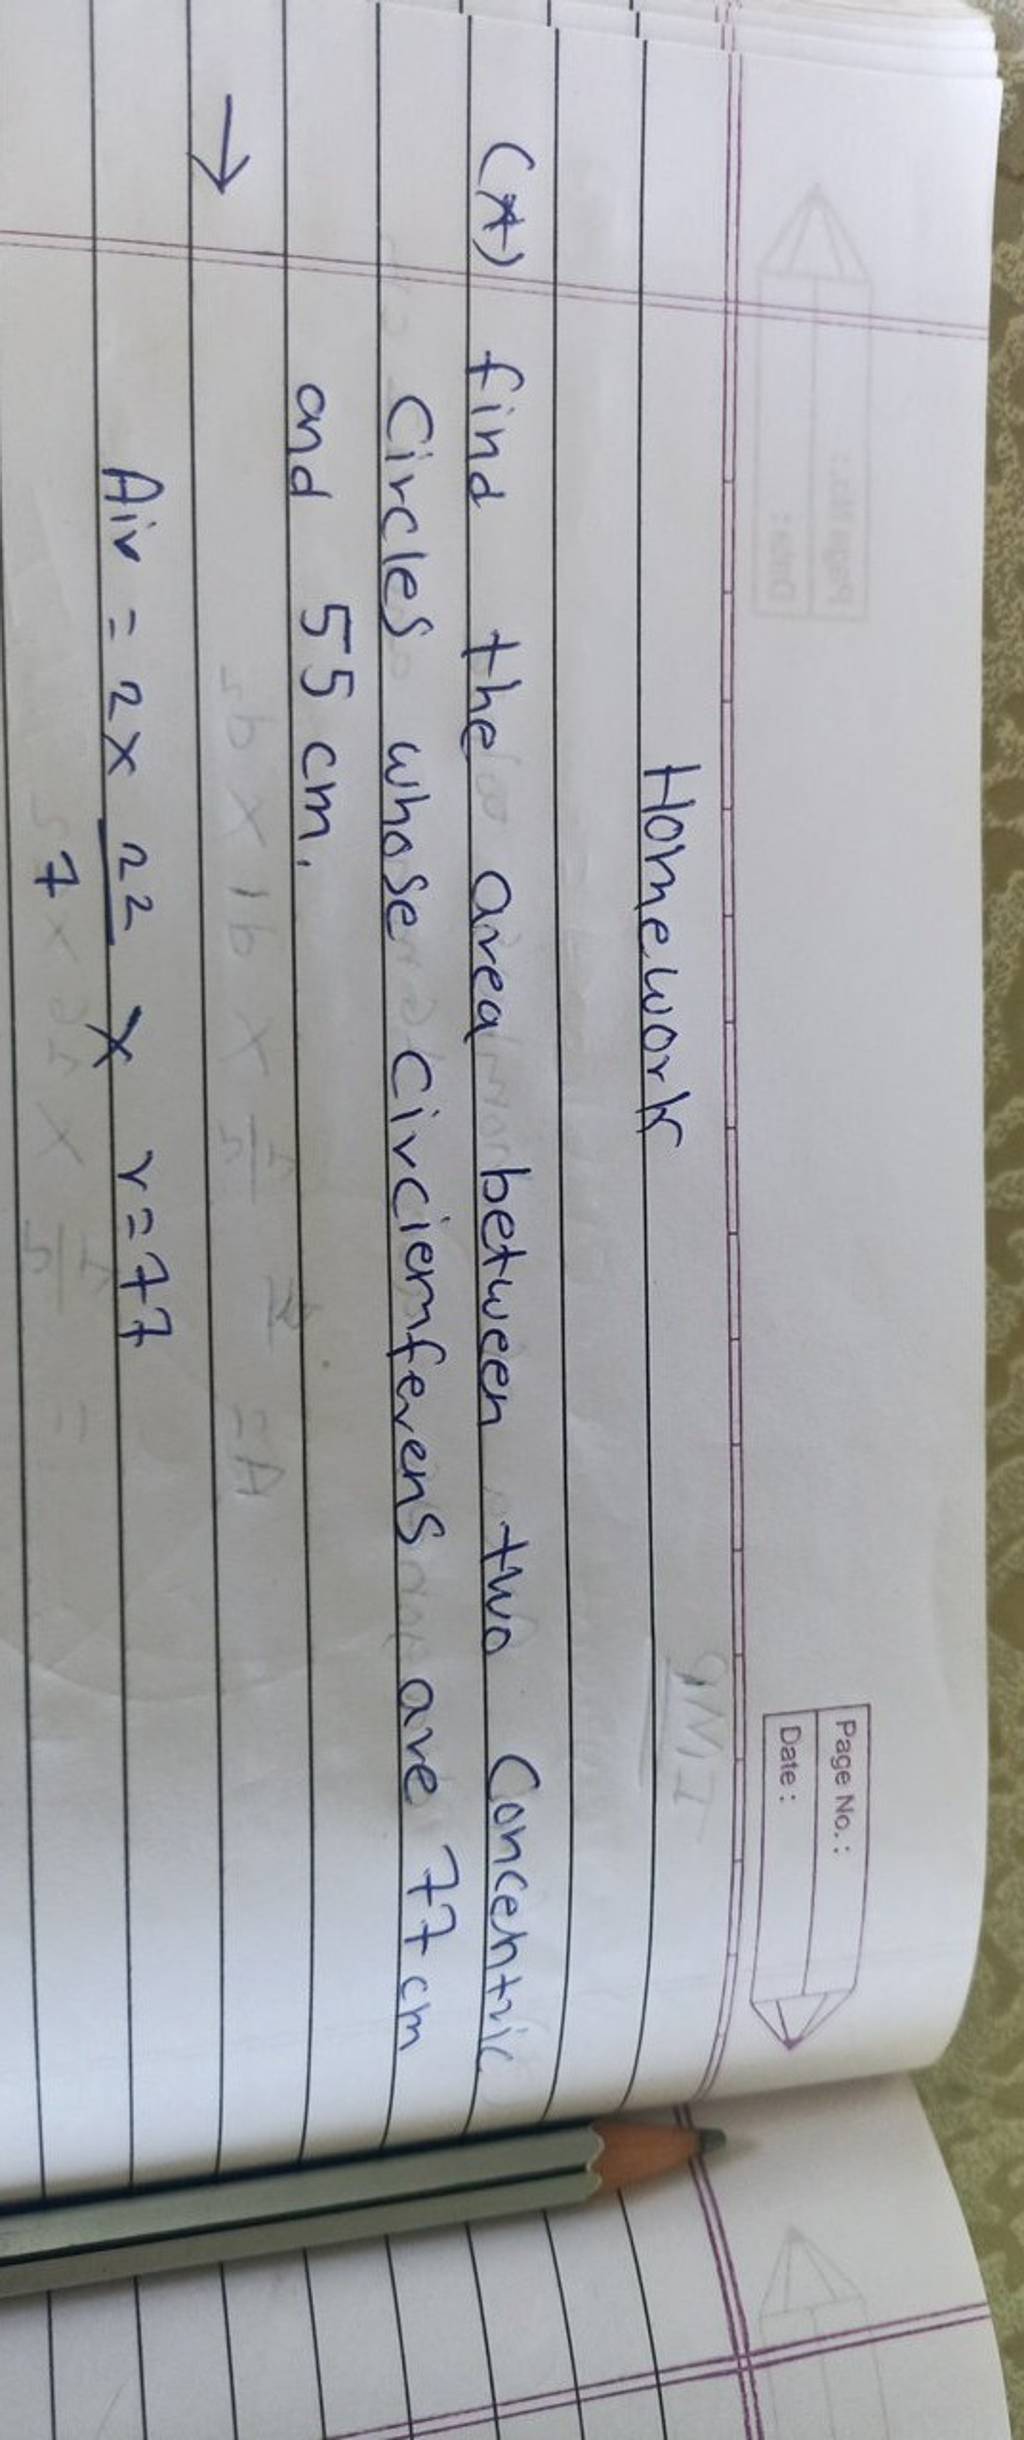 Page No. :
Date :
Homework
(x) find the area between two Concentric
Circles whose Circiemferens are 77 cm
and 55 cm.
→
Air = 2x 22/7 x r = 77